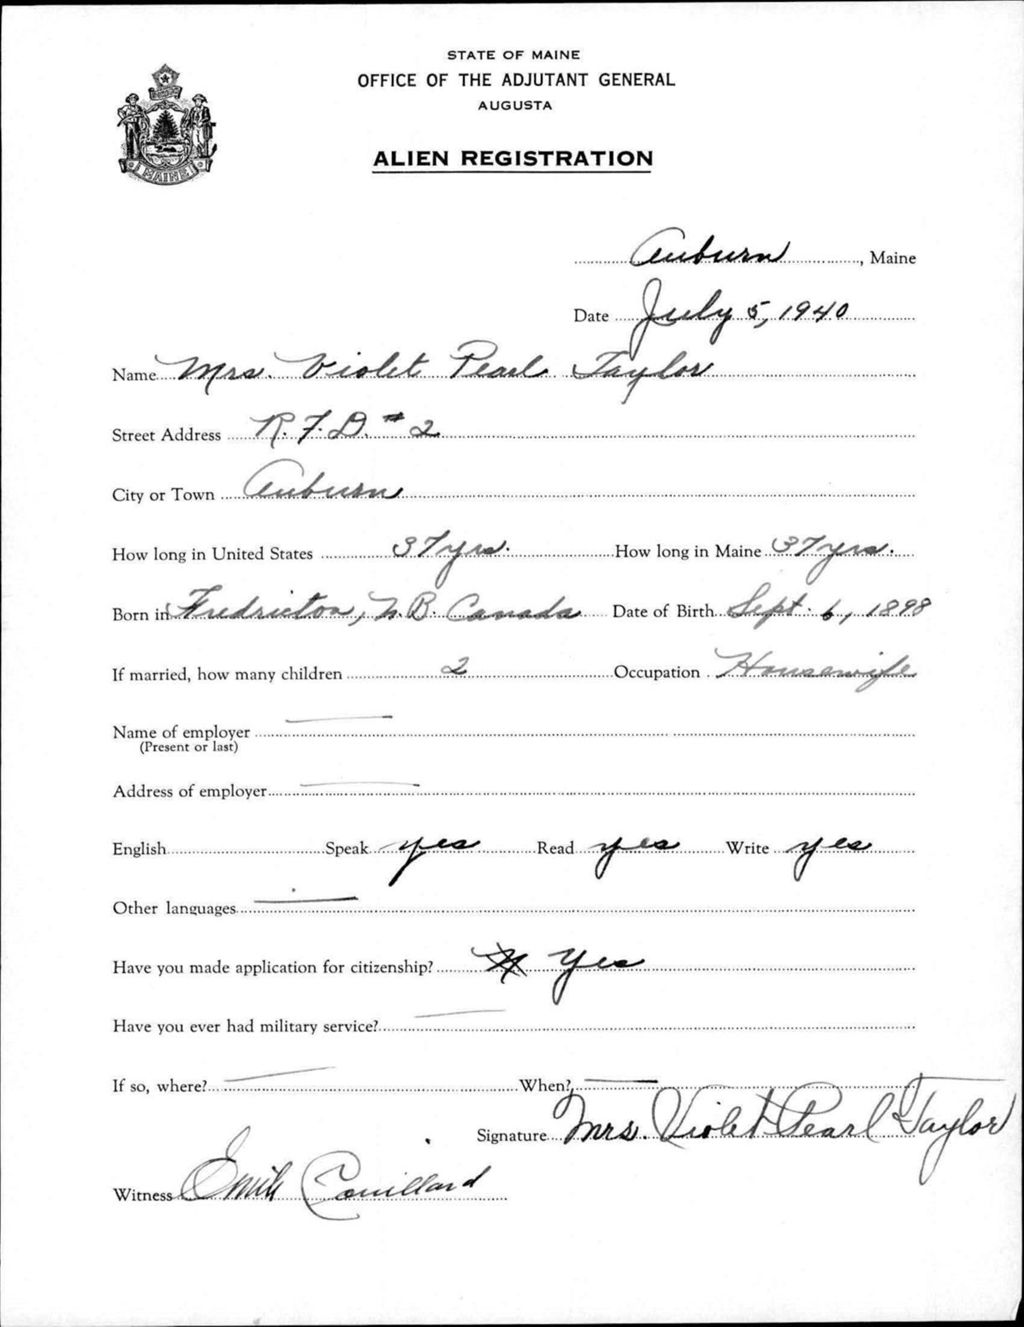 STATE OF MAINE
OFFICE OF THE ADJUTANT GENERAL
AUGUSTA
ALIEN REGISTRATION
MAINE
Auburn, Maine
Date July 5, 1940
Name Mrs. Violet Pearl Taylor
Street Address R.F.D. # 2
City or Town Auburn
How long in United States 37 yrs. How long in Maine 37 yrs.
Born in Fredricton, N.B. Canada Date of Birth Sept. 6, 1898
If married, how many children 2 Occupation Housewife
Name of employer
(Present or last)
Address of employer
English Speak yes Read yes Write yes
Other languages
Have you made application for citizenship? Yes
Have you ever had military service?
If so, where? When?
Signature Mrs. Violet Pearl Taylor
Witness Emile Couillard